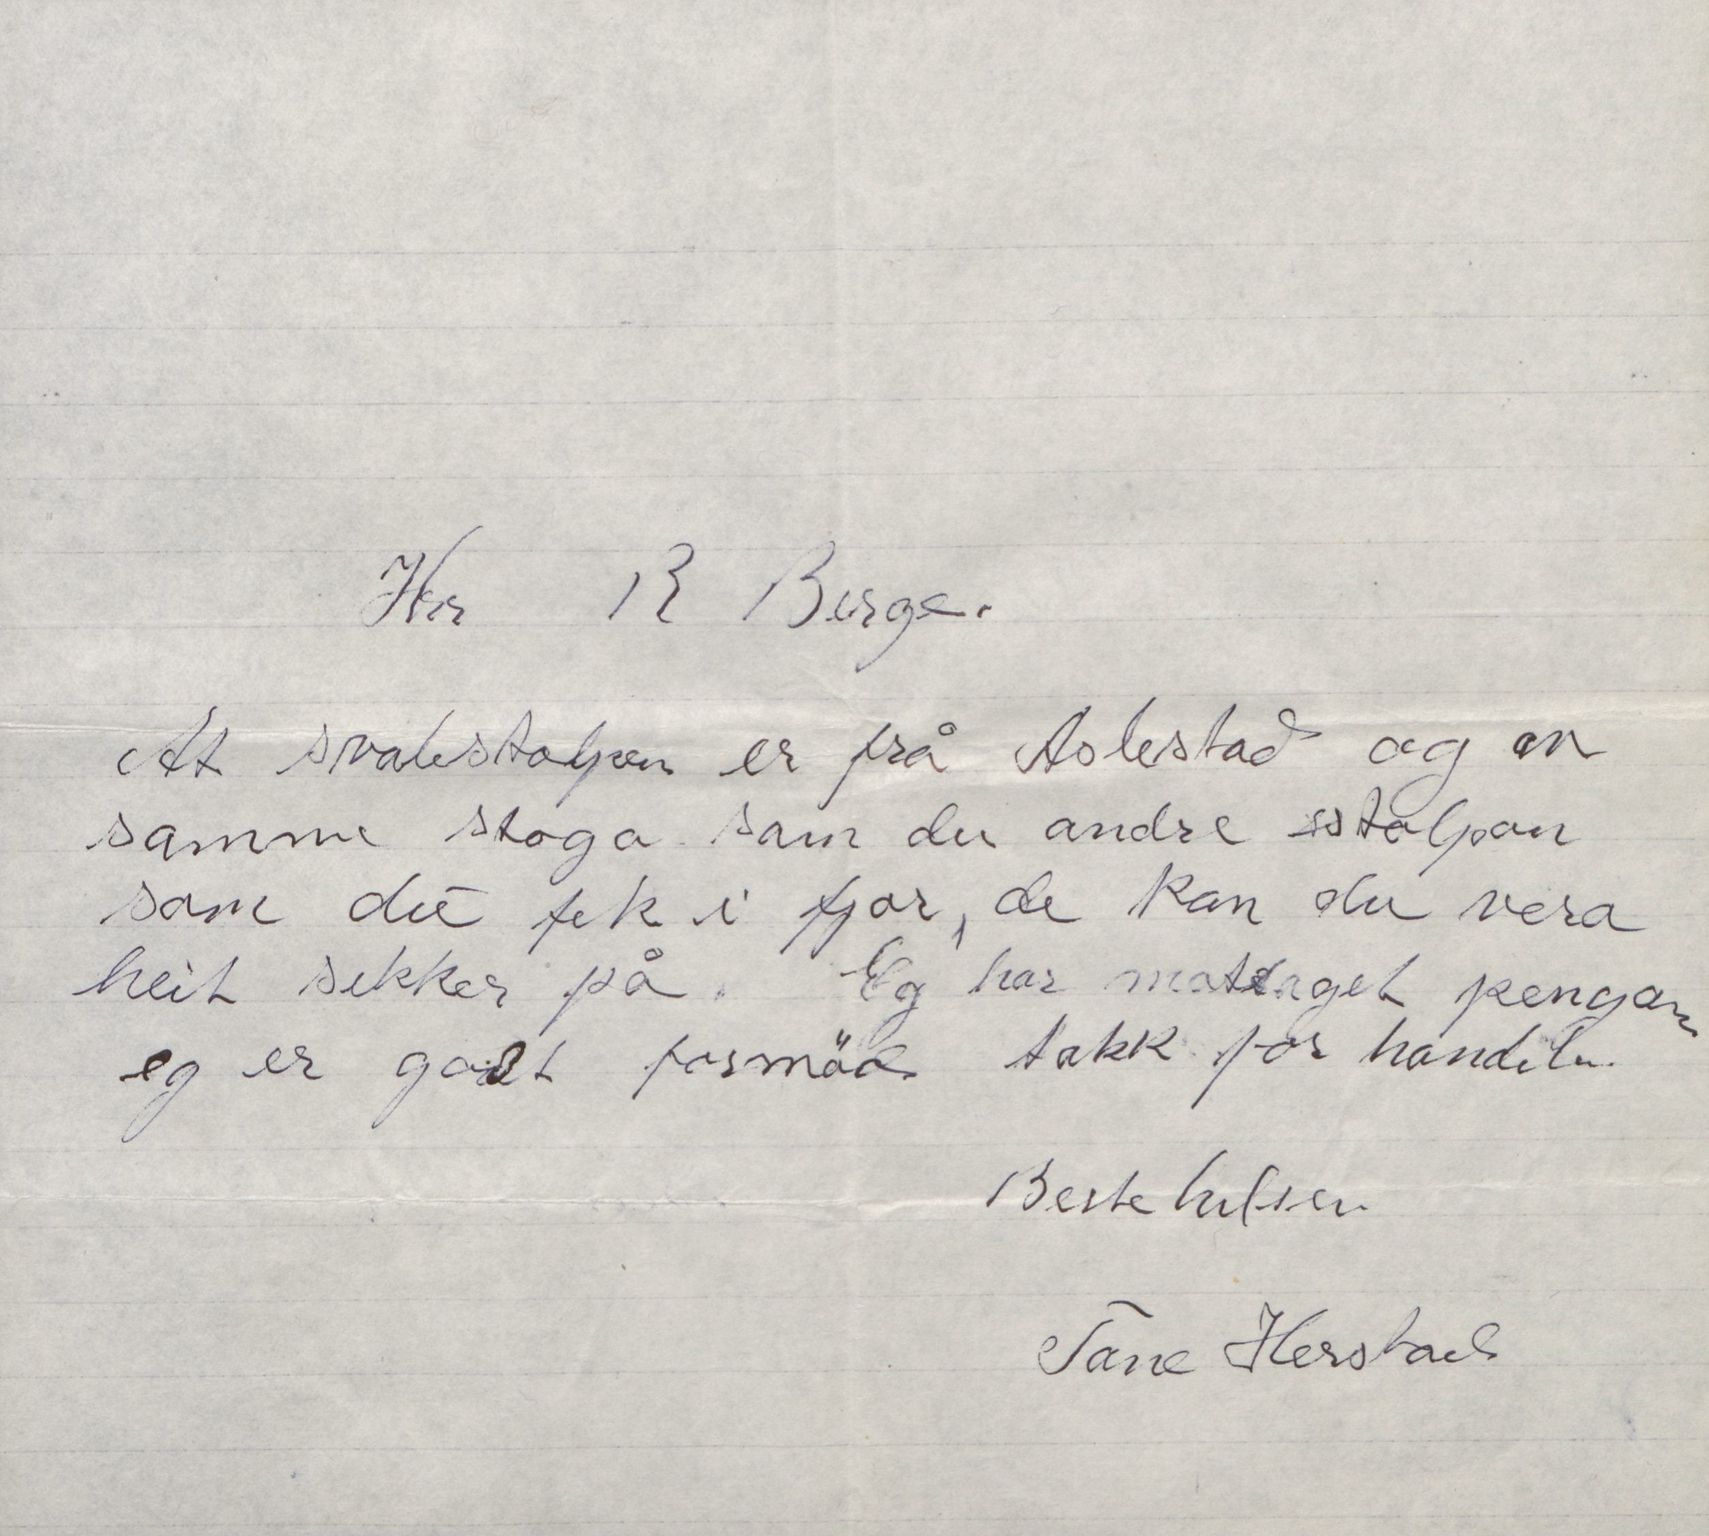 Her R Berge.
At svalestolpen er frå Aslestad og en
samme stoga som den andre stolpan
som du fek i fjor, de kan du vera
heit sikker på. Eg har mottaget pengan
eg er godt fornöd takk for handeln.
Beste hilsen
Tåne Herstad